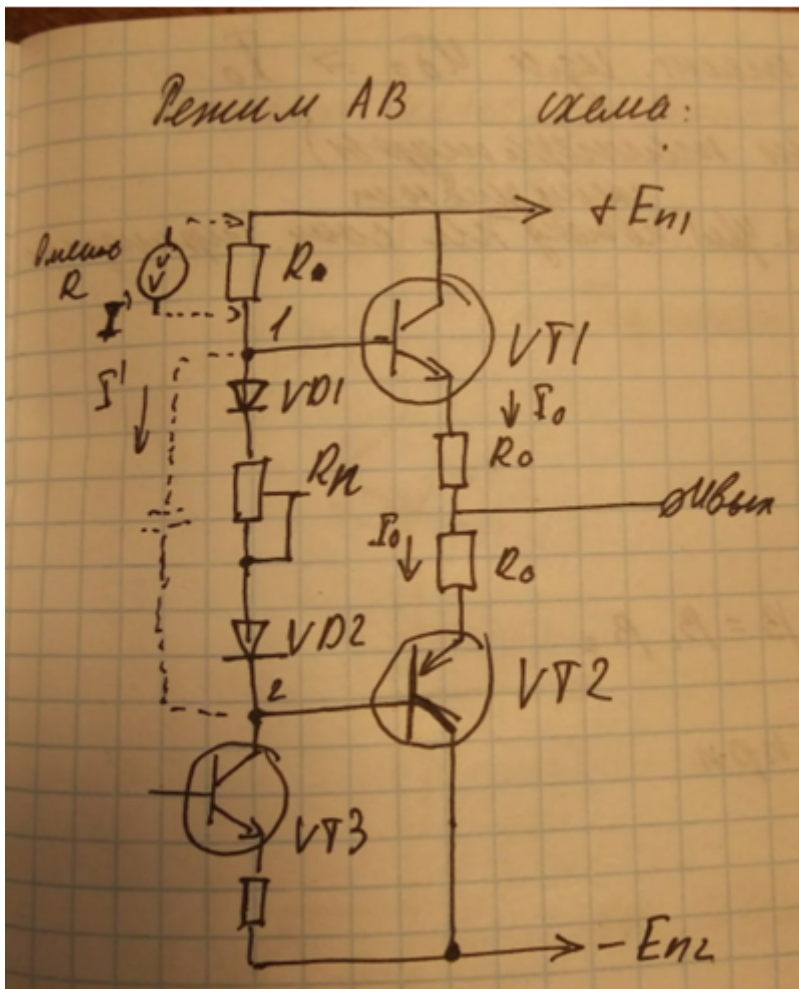 Режим АВ схема:
+ Еп1
Вместо
R
R
I
1
I'
VD1
VT1
I0
R0
Rп
Uвых
I0
R0
VD2
VT2
2
VT3
- Еп2